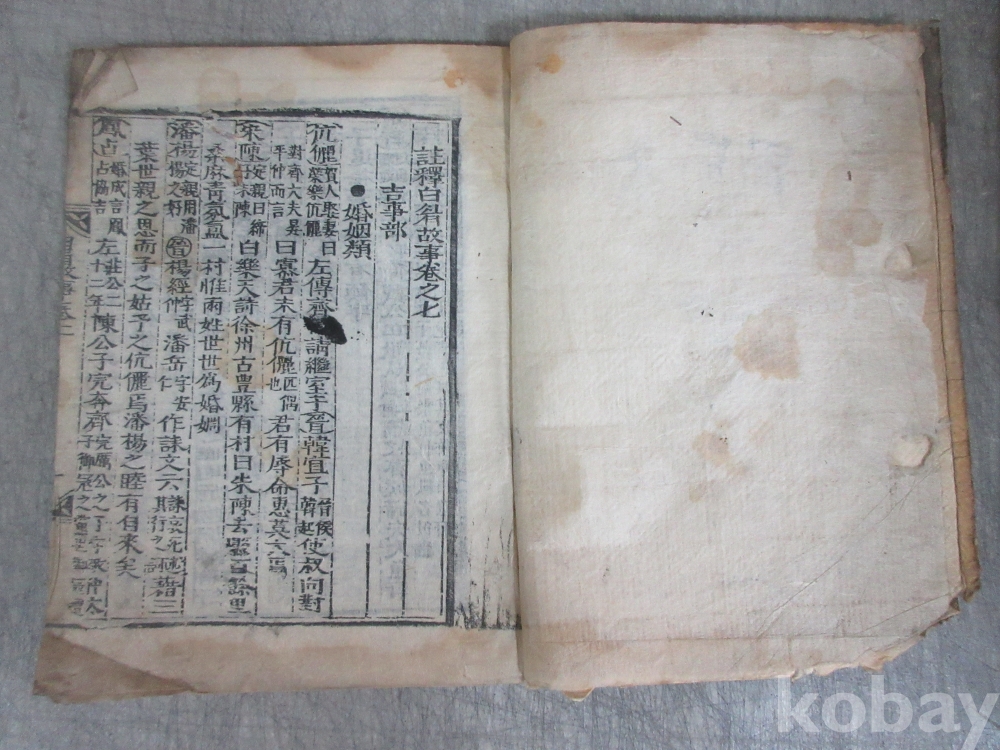 註釋白眉故事卷之七
吉事部
婚姻類
伉儷 賀人娶妻曰榮樂伉儷 左傳齊請繼室于晉韓宣子 晉侯韓起 使叔向對
對齊大夫晏平仲而言 曰寡君未有伉儷 匹偶也 君有辱命惠莫大焉
朱陳 白樂天詩徐州古豊縣有村曰朱陳去縣百餘里
桑麻青氛氳一村惟兩姓世世爲婚姻
潘楊 定親用潘楊之好 晉楊經 潘岳 作誄文 藉三
葉世親之恩而子之姑予之伉儷焉潘楊之睦有自來矣
鳳占 婚成言鳳占協吉 左 莊公二十二年 陳公子完奔齊
kobay